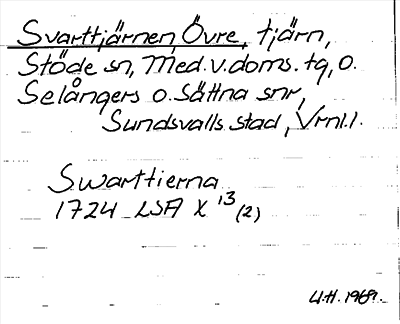 Svarttjärnen, Övre, tjärn,
Stöde sn, Med. v. doms. tg, o.
Selångers o. Sättna snr,
Sundsvalls stad, Vrnl.l.
Swarttierna
1724 LSA X 13 (2)
U.H. 1969.